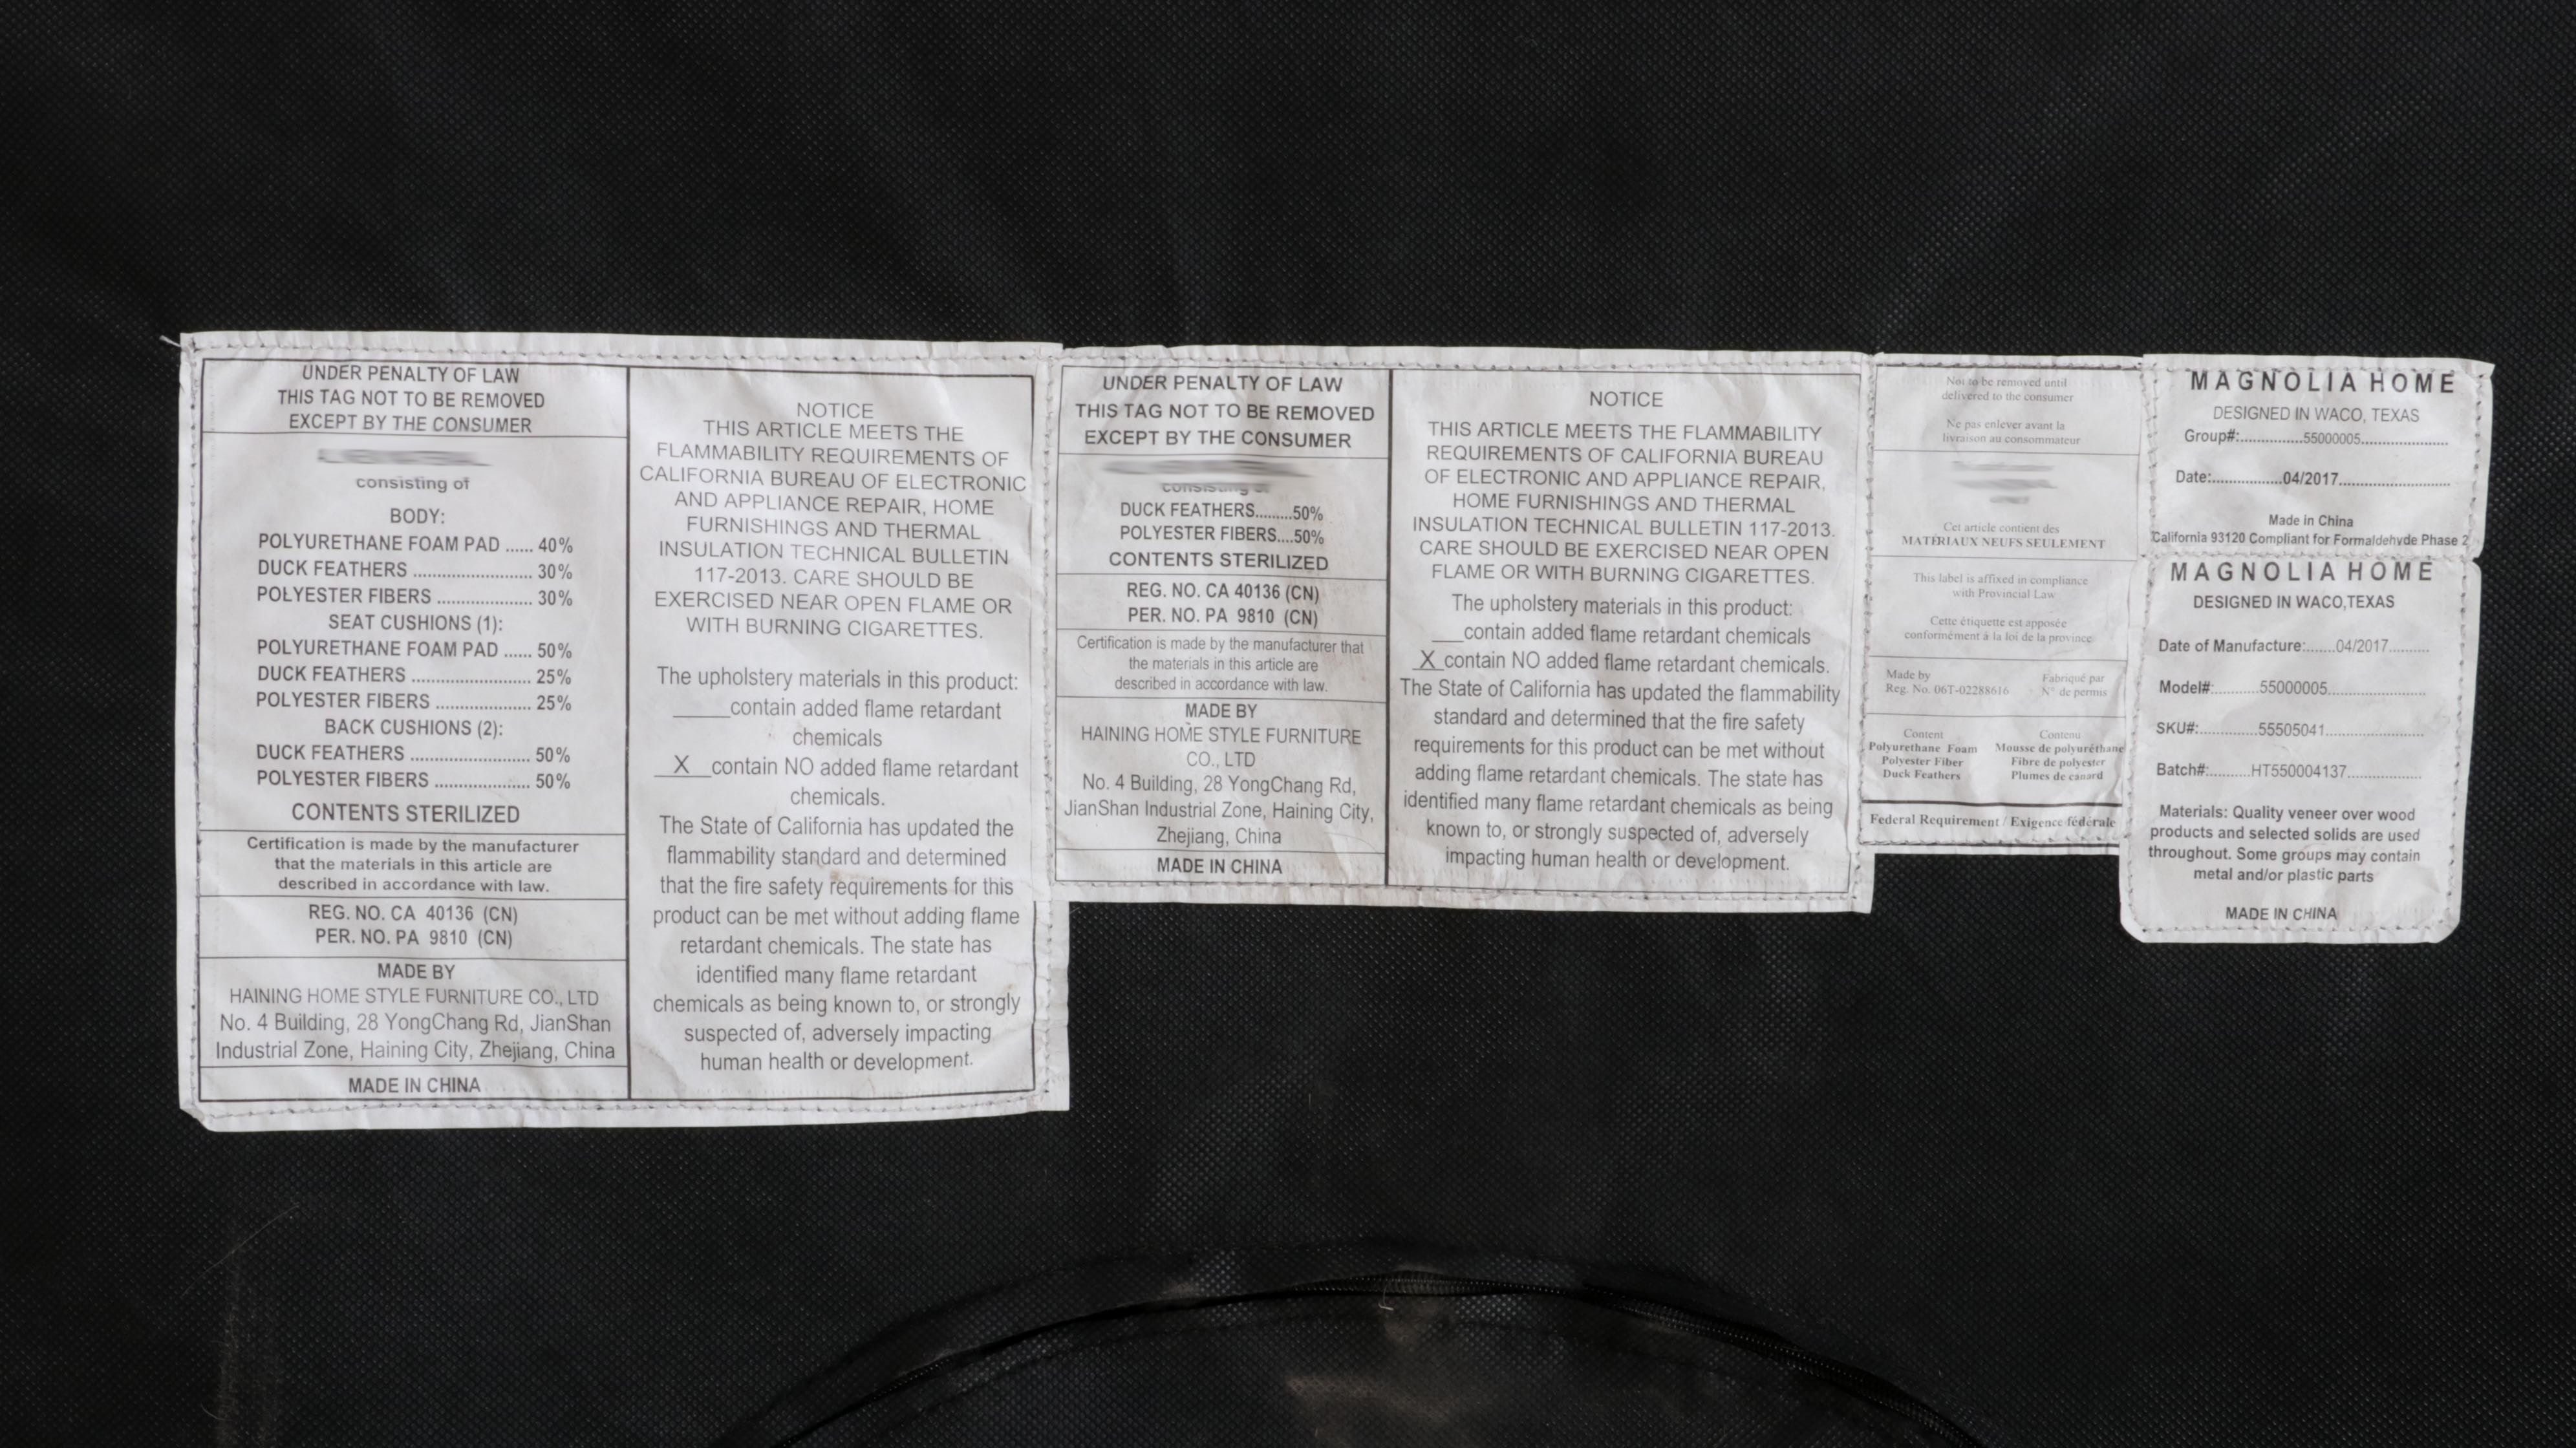 UNDER PENALTY OF LAW
THIS TAG NOT TO BE REMOVED
EXCEPT BY THE CONSUMER
consisting of
BODY:
POLYURETHANE FOAM PAD ...... 40%
DUCK FEATHERS .......................... 30%
POLYESTER FIBERS ..................... 30%
SEAT CUSHIONS (1):
POLYURETHANE FOAM PAD ...... 50%
DUCK FEATHERS .......................... 25%
POLYESTER FIBERS ..................... 25%
BACK CUSHIONS (2):
DUCK FEATHERS .......................... 50%
POLYESTER FIBERS ..................... 50%
CONTENTS STERILIZED
Certification is made by the manufacturer
that the materials in this article are
described in accordance with law.
REG. NO. CA 40136 (CN)
PER. NO. PA 9810 (CN)
MADE BY
HAINING HOME STYLE FURNITURE CO., LTD
No. 4 Building, 28 YongChang Rd, JianShan
Industrial Zone, Haining City, Zhejiang, China
MADE IN CHINA
NOTICE
THIS ARTICLE MEETS THE
FLAMMABILITY REQUIREMENTS OF
CALIFORNIA BUREAU OF ELECTRONIC
AND APPLIANCE REPAIR, HOME
FURNISHINGS AND THERMAL
INSULATION TECHNICAL BULLETIN
117-2013. CARE SHOULD BE
EXERCISED NEAR OPEN FLAME OR
WITH BURNING CIGARETTES.
The upholstery materials in this product:
_____contain added flame retardant
chemicals
__X__contain NO added flame retardant
chemicals.
The State of California has updated the
flammability standard and determined
that the fire safety requirements for this
product can be met without adding flame
retardant chemicals. The state has
identified many flame retardant
chemicals as being known to, or strongly
suspected of, adversely impacting
human health or development.
UNDER PENALTY OF LAW
THIS TAG NOT TO BE REMOVED
EXCEPT BY THE CONSUMER
consisting of
DUCK FEATHERS.........50%
POLYESTER FIBERS....50%
CONTENTS STERILIZED
REG. NO. CA 40136 (CN)
PER. NO. PA 9810 (CN)
Certification is made by the manufacturer that
the materials in this article are
described in accordance with law.
MADE BY
HAINING HOME STYLE FURNITURE
CO., LTD
No. 4 Building, 28 YongChang Rd,
JianShan Industrial Zone, Haining City,
Zhejiang, China
MADE IN CHINA
NOTICE
THIS ARTICLE MEETS THE FLAMMABILITY
REQUIREMENTS OF CALIFORNIA BUREAU
OF ELECTRONIC AND APPLIANCE REPAIR,
HOME FURNISHINGS AND THERMAL
INSULATION TECHNICAL BULLETIN 117-2013.
CARE SHOULD BE EXERCISED NEAR OPEN
FLAME OR WITH BURNING CIGARETTES.
The upholstery materials in this product:
___contain added flame retardant chemicals
_X_contain NO added flame retardant chemicals.
The State of California has updated the flammability
standard and determined that the fire safety
requirements for this product can be met without
adding flame retardant chemicals. The state has
identified many flame retardant chemicals as being
known to, or strongly suspected of, adversely
impacting human health or development.
Not to be removed until
delivered to the consumer
Ne pas enlever avant la
livraison au consommateur
Cet article contient des
MATÉRIAUX NEUFS SEULEMENT
This label is affixed in compliance
with Provincial Law
Cette étiquette est apposée
conformément à la loi de la province
Made by Fabriqué par
Reg. No. 06T-02288616 N° de permis
Content Contenu
Polyurethane Foam Mousse de polyuréthane
Polyester Fiber Fibre de polyester
Duck Feathers Plumes de canard
Federal Requirement / Exigence fédérale
MAGNOLIA HOME
DESIGNED IN WACO, TEXAS
Group#:...............55000005.....................
Date:.................04/2017...........................
Made in China
California 93120 Compliant for Formaldehyde Phase 2
MAGNOLIA HOME
DESIGNED IN WACO,TEXAS
Date of Manufacture:.......04/2017..........
Model#:...........55000005........................
SKU#:..............55505041........................
Batch#:..........HT550004137..................
Materials: Quality veneer over wood
products and selected solids are used
throughout. Some groups may contain
metal and/or plastic parts
MADE IN CHINA